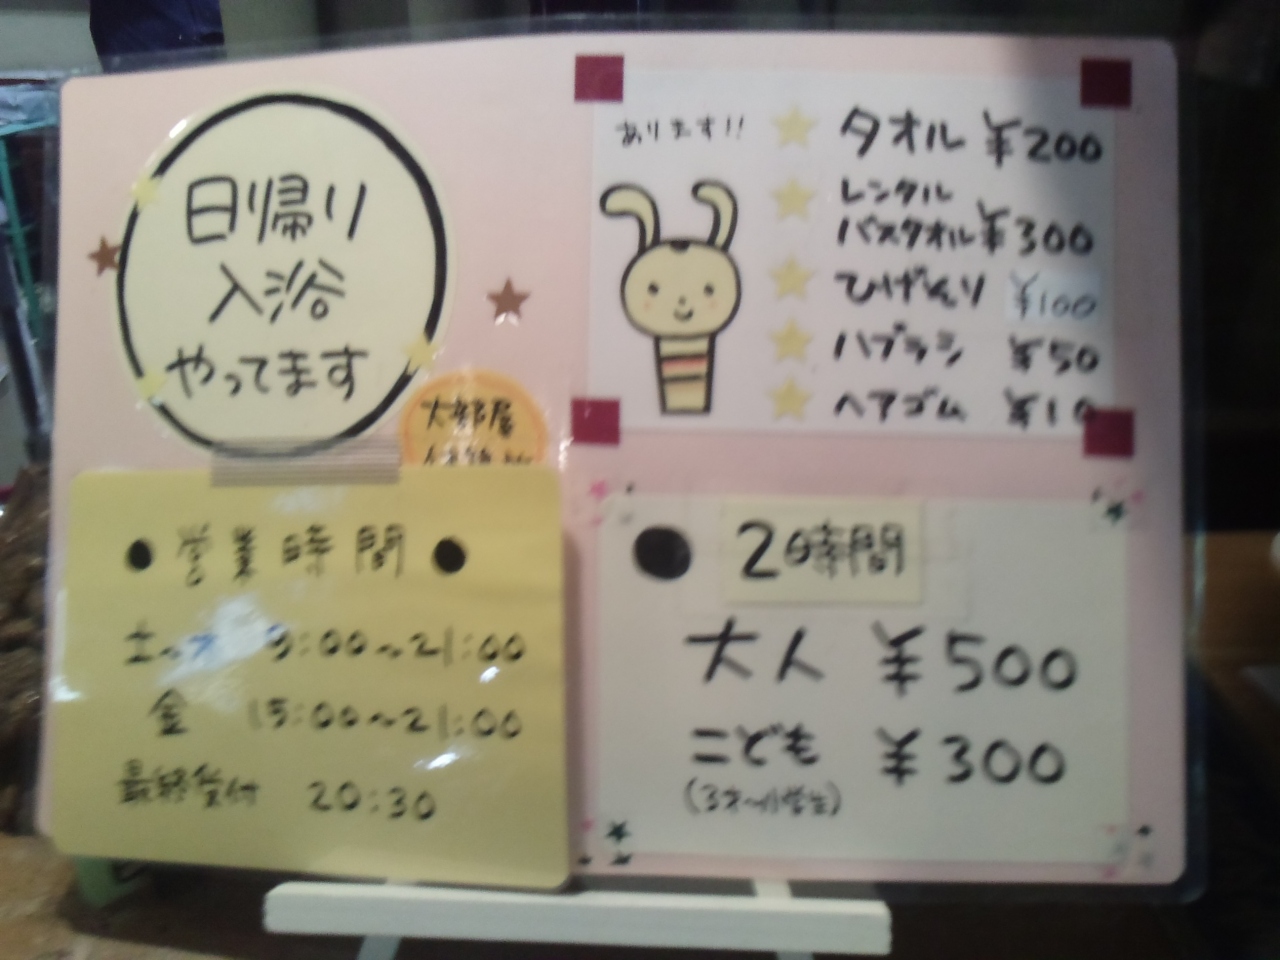 日帰り
入浴
やってます
大部屋
あります!!
タオル ¥200
レンタル
バスタオル ¥300
ひげそり ¥100
ハブラシ ¥50
ヘアゴム ¥10
● 営業時間 ●
土〜 9:00〜21:00
金 15:00〜21:00
最終受付 20:30
● 2時間
大人 ¥500
こども ¥300
(3才〜小学生)